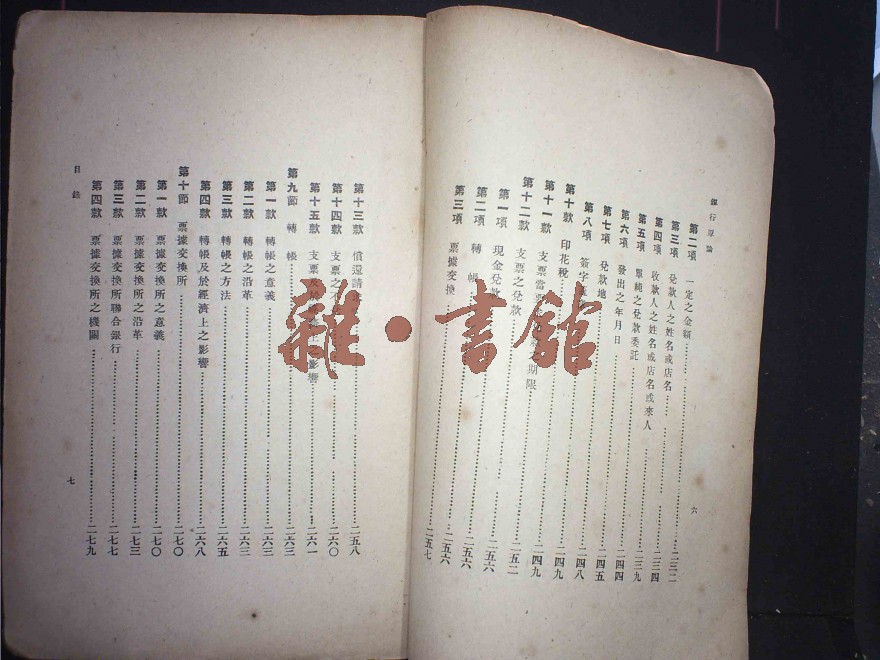 銀行原論
第二項 一定之金額 二三二
第三項 兌款人之姓名或店名 二三四
第四項 收款人之姓名或店名或來人 二三四
第五項 單純之兌款委託 二三九
第六項 發出之年月日 二四四
第七項 兌款地 二四五
第八項 簽字 二四八
第十款 印花稅 二四九
第十一款 支票當 期限 二四九
第十二款 支票之兌款 二五二
第一項 現金兌款 二五六
第二項 轉帳 二五六
第三項 票據交換 二五七
六
第十三款 償還請 二五八
第十四款 支票之 二六〇
第十五款 支票及於 上之影響 二六一
第九節 轉帳 二六三
第一款 轉帳之意義 二六三
第二款 轉帳之沿革 二六三
第三款 轉帳之方法 二六五
第四款 轉帳及於經濟上之影響 二六八
第十節 票據交換所 二七〇
第一款 票據交換所之意義 二七〇
第二款 票據交換所之沿革 二七三
第三款 票據交換所聯合銀行 二七七
第四款 票據交換所之機關 二七九
目錄
七
雜·書館